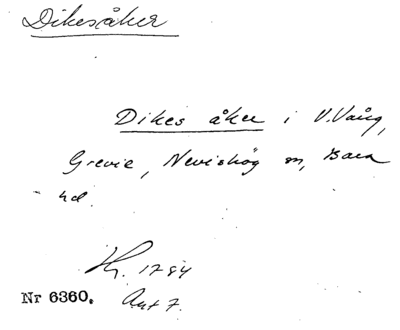 Dikesåker
Dikes åker i V.Vång,
Grevie, Nevishög sn, Bara
hd.
Hr. 1784
Nr 6360. Akt 7.